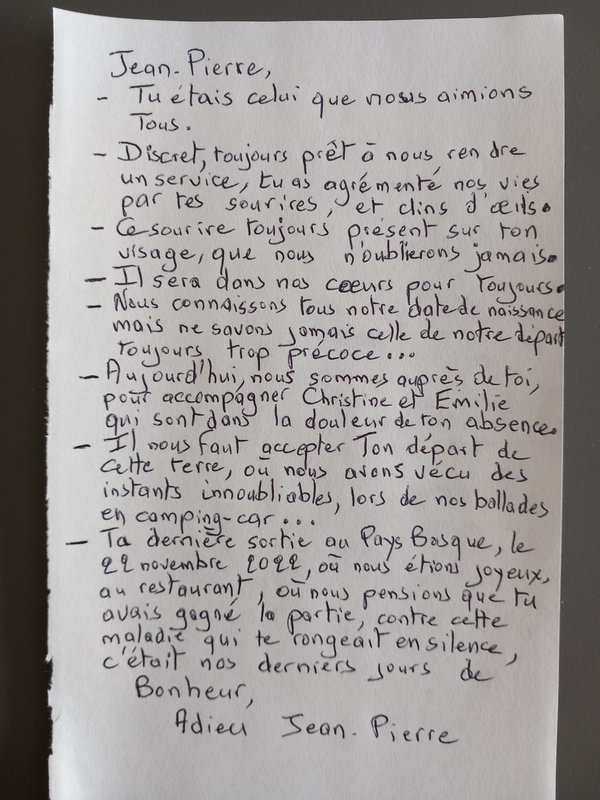 Jean-Pierre,
- Tu étais celui que nous aimions
Tous.
- Discret, toujours prêt à nous rendre
un service, tu as agrémenté nos vies
par tes sourires, et clins d'œils.
- Ce sourire toujours présent sur ton
visage, que nous n'oublierons jamais.
- Il sera dans nos cœurs pour toujours.
- Nous connaissons tous notre date de naissance
mais ne savons jamais celle de notre départ
toujours trop précoce...
- Aujourd'hui, nous sommes auprès de toi,
pour accompagner Christine et Emilie
qui sont dans la douleur de ton absence.
- Il nous faut accepter Ton départ de
cette terre, où nous avons vécu des
instants innoubliables, lors de nos ballades
en camping-car...
- Ta dernière sortie au Pays Basque, le
22 novembre 2022, où nous étions joyeux,
au restaurant, où nous pensions que tu
avais gagné la partie, contre cette
maladie qui te rongeait en silence,
c'était nos derniers jours de
Bonheur,
Adieu Jean-Pierre